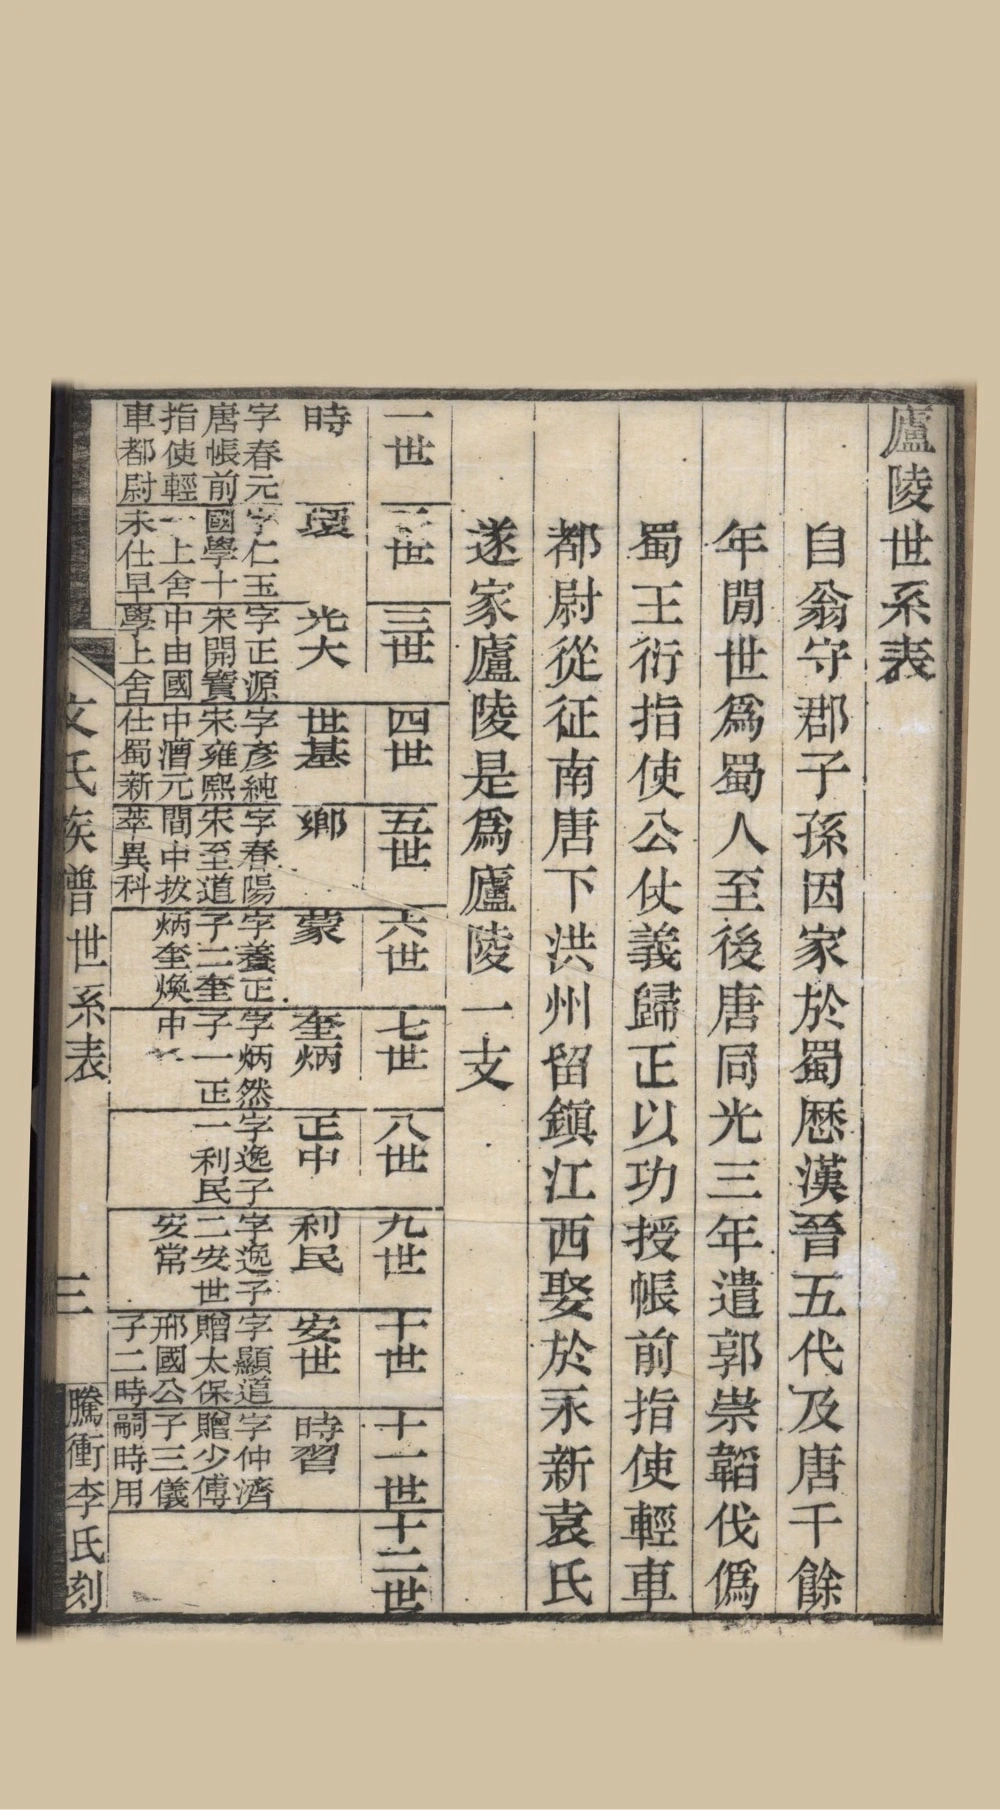 廬陵世系表
自翁守郡子孫因家於蜀歷漢晉五代及唐千餘
年間世爲蜀人至後唐同光三年遣郭崇韜伐僞
蜀王衍指使公仗義歸正以功授帳前指使輕車
都尉從征南唐下洪州留鎮江西娶於永新袁氏
遂家廬陵是爲廬陵一支
一世
二世
三世
四世
五世
六世
七世
八世
九世
十世
十一世
十二世
時
字春元
唐帳前
指使輕
車都尉
字仁玉
國學十
一上舍
未仕早
光大
字正源
宋開寶
中由國
學上舍
世基
字彥純
宋雍熙
中漕元
仕蜀新
鄉
字春陽
宋至道
間中拔
萃異科
蒙
字養正
子二奎
炳奎煥
奎炳
字炳然
子一正
中
正中
字逸子
一利民
利民
字逸子
二安世
安常
安世
字顯道
贈太保
邢國公
子二時
時習
字仲濟
贈少傅
子三儀
嗣時用
文氏族譜世系表
三
騰衝李氏刻